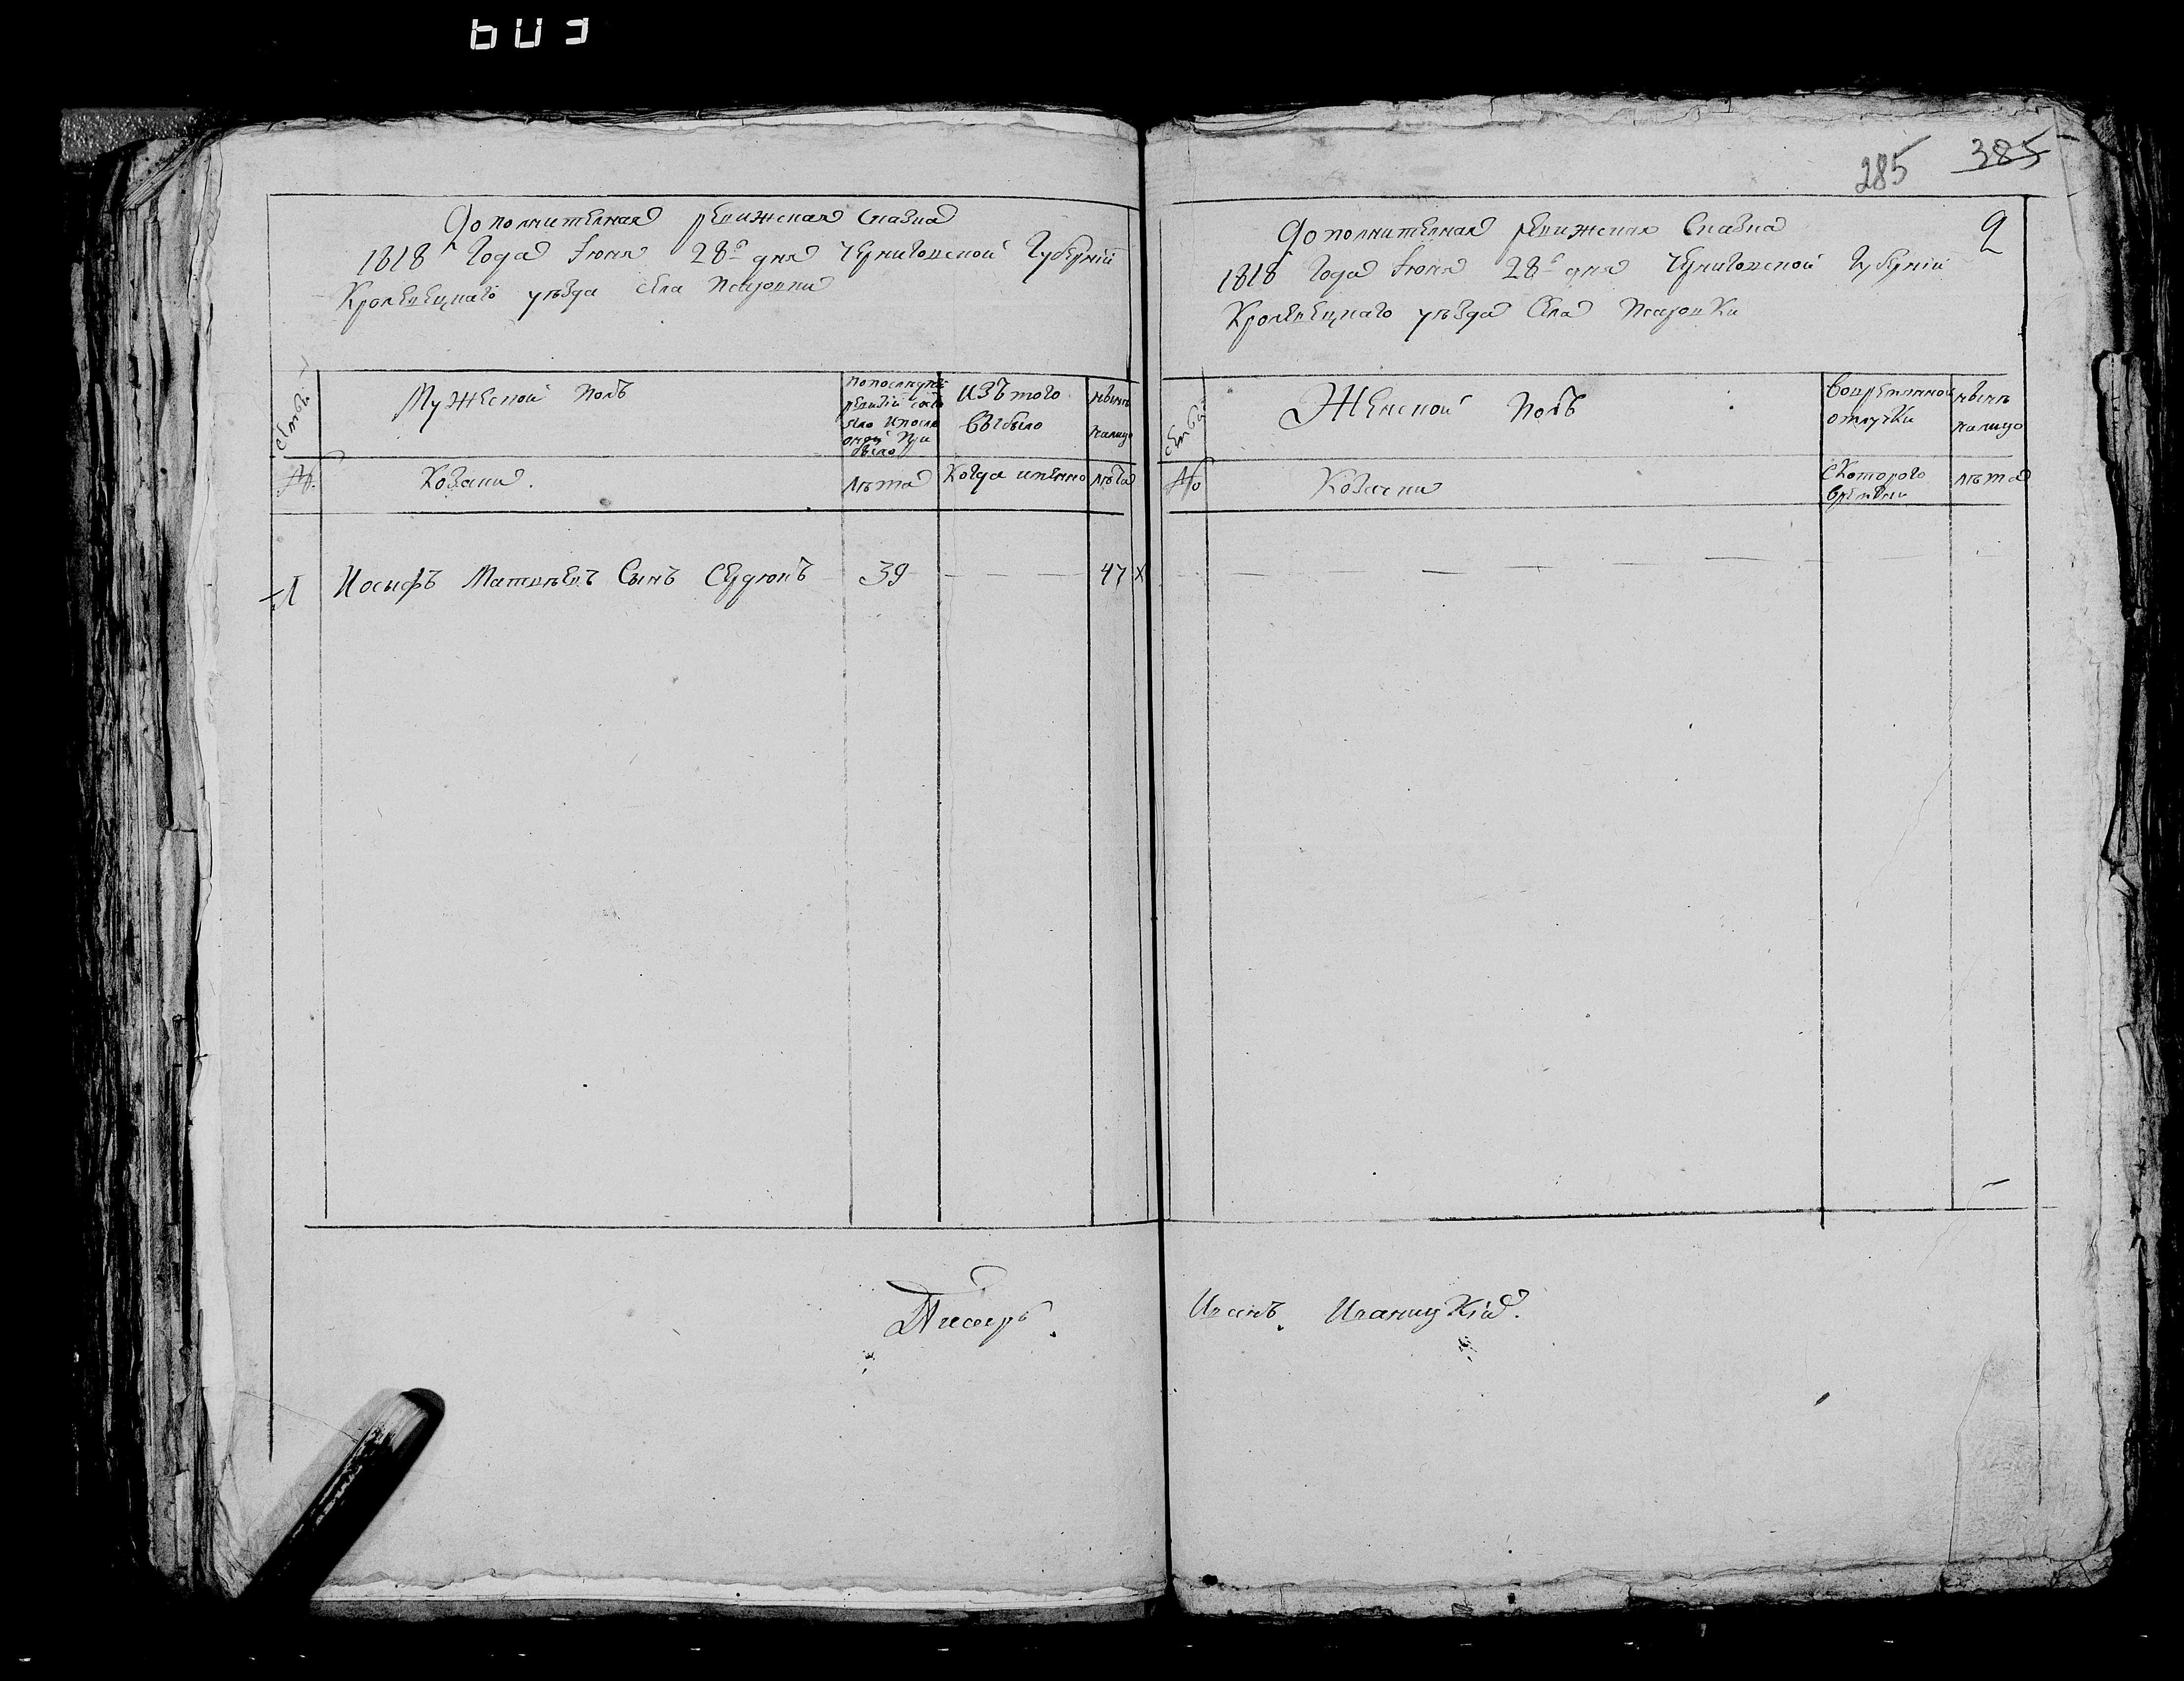 603
Дополнителная ревижская сказка
1818 Года Июня 28º дня Черниговской Губерніи
Кролевецкаго уезда села Псаровки
Семьи
Мужеской полъ
по последней ревизіи состояло и после оной прибыло
изъ того выбыло
нынѣ налицо
№
Козаки.
лѣта
Когда имянно
лѣта
1
Иосифъ Матвѣевъ Сынъ Сердюкъ
39
47 х
Писаръ
285
385
2
Дополнителная ревижская Сказка
1818 Года Июня 28º дня Черниговской Губерніи
Кролевецкаго уезда Села Псаровки
Семьи
Женской полъ
Вовременной отлучки
нынѣ налицо
№
Козачки
С Которого времени
лѣта
Иванъ Иваницкій.